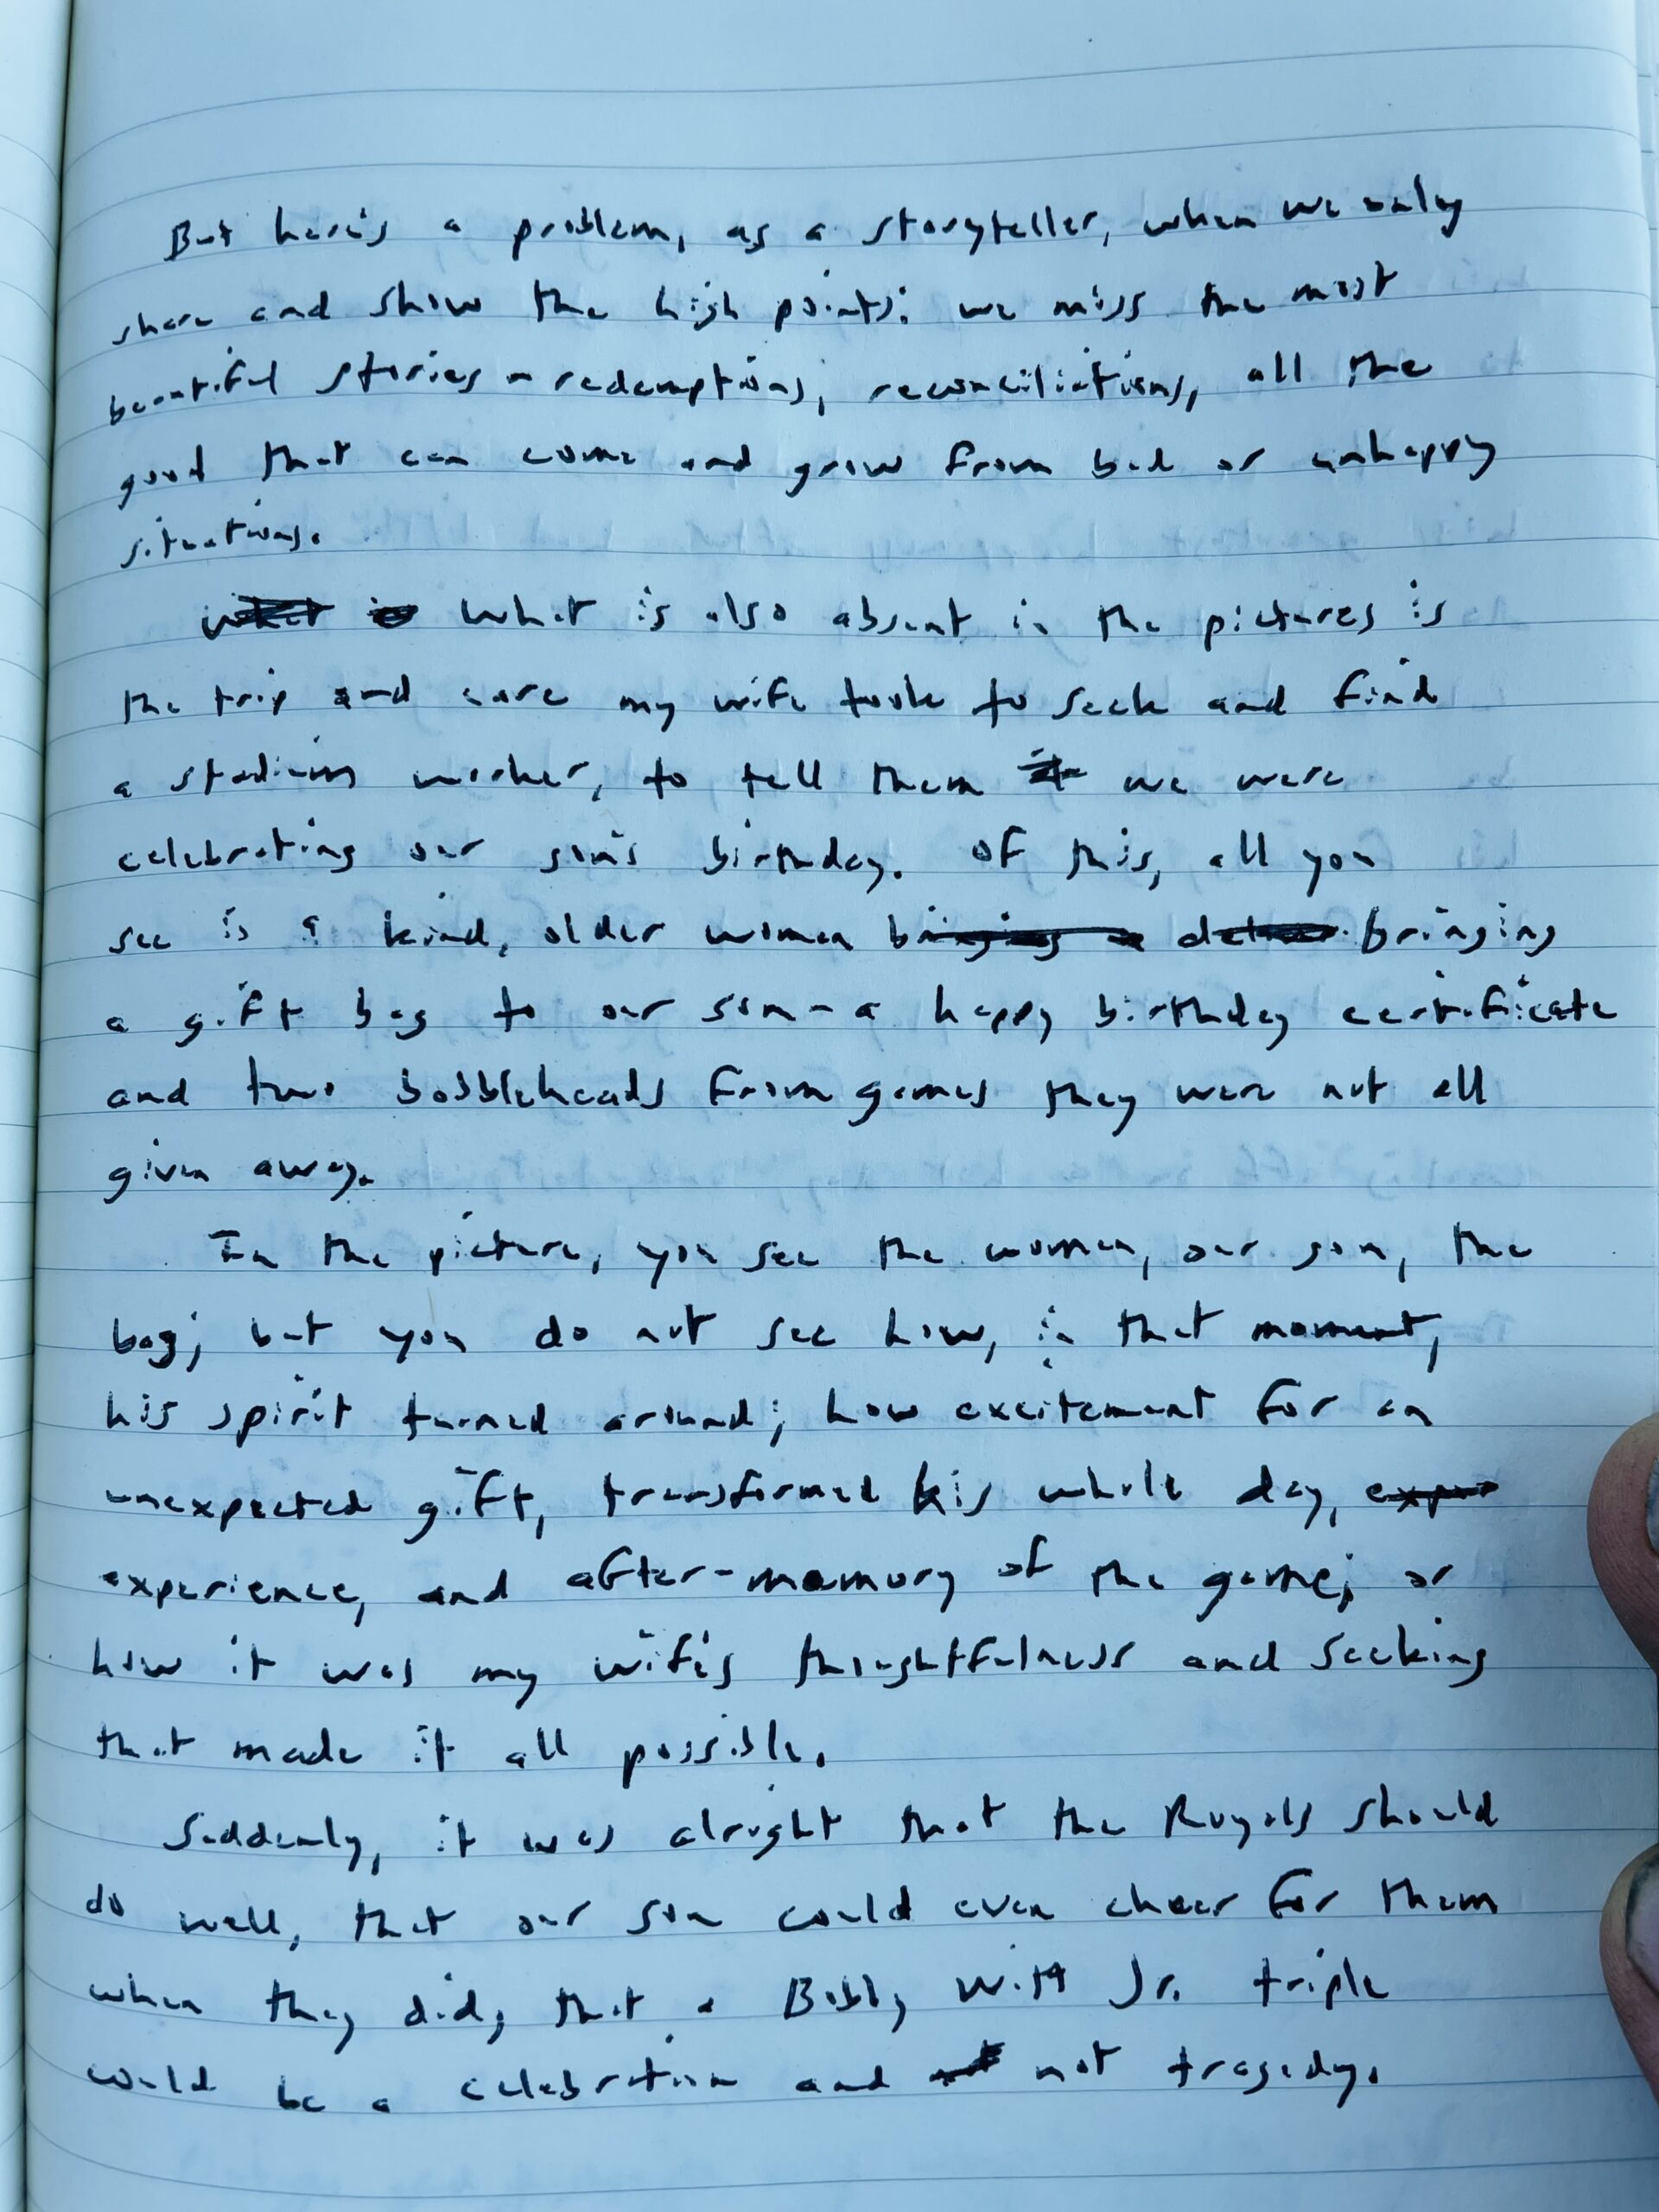 But here's a problem, as a storyteller, when we only
share and show the high points: we miss the most
beautiful stories - redemptions, reconciliations, all the
good that can come and grow from bad or unhappy
situations.
What is also absent in the pictures is
the trip and care my wife took to seek and find
a stadium worker, to tell them we were
celebrating our son's birthday. Of this, all you
see is a kind, older woman bringing
a gift bag to our son - a happy birthday certificate
and two bobbleheads from games they were not all
given away.
In the picture, you see the woman, our son, the
bag; but you do not see how, in that moment,
his spirit turned around; how excitement for an
unexpected gift, transformed his whole day,
experience, and after-memory of the game; or
how it was my wife's thoughtfulness and seeking
that made it all possible.
Suddenly, it was alright that the Royals should
do well, that our son could even cheer for them
when they did, that a Bobby Witt Jr. triple
could be a celebration and not tragedy.